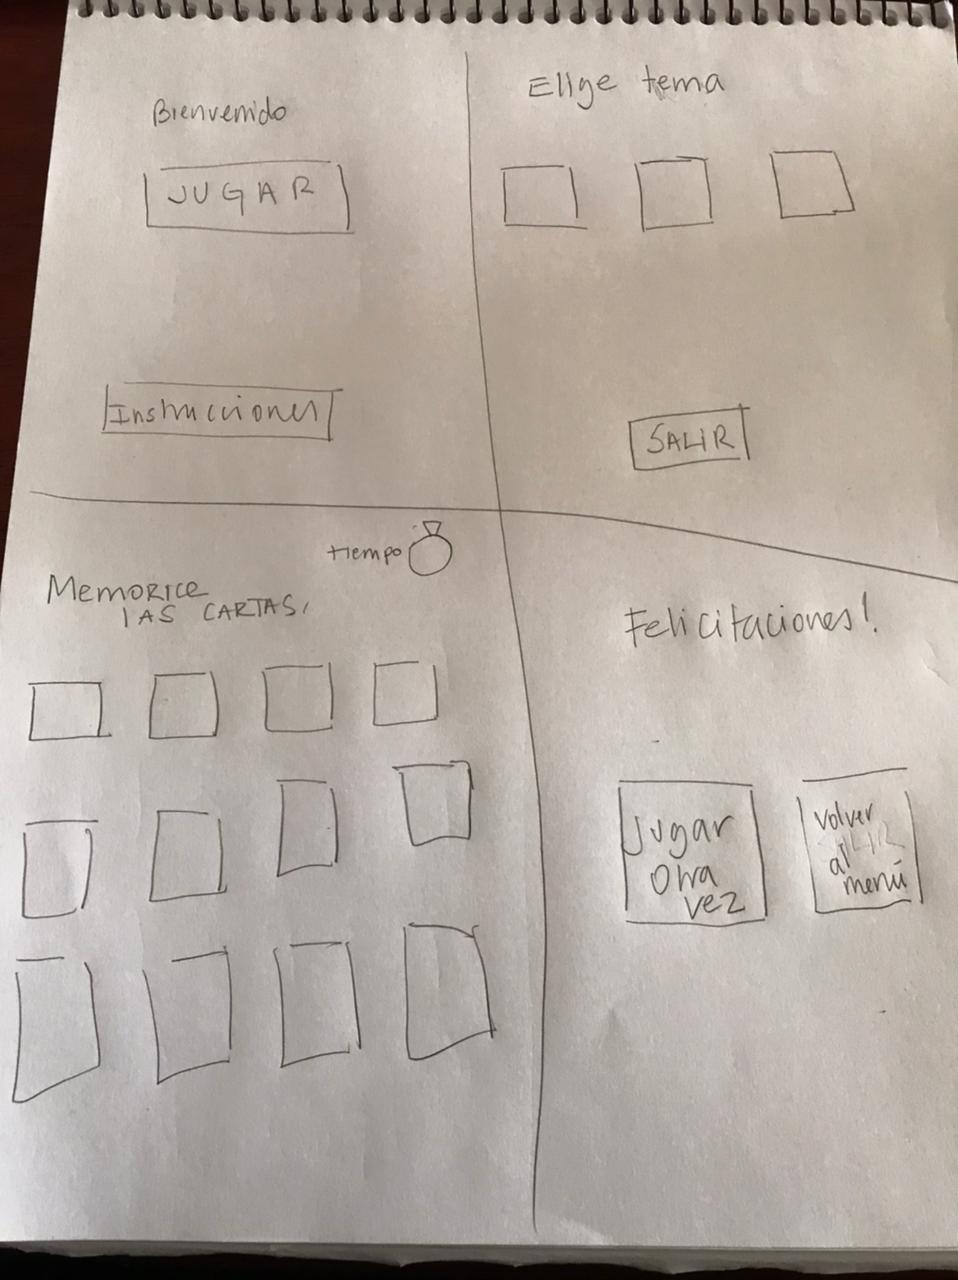 Bienvenido
JUGAR
Instrucciones
Elige tema
SALIR
tiempo
Memorice
las cartas,
Felicitaciones!
Jugar
Otra
vez
Volver
al
menú